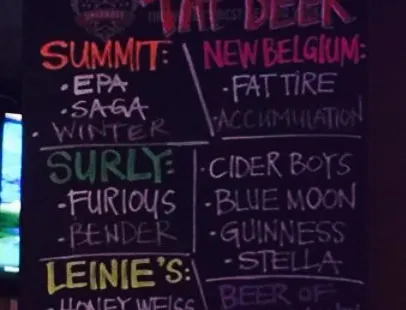 TAP BEER
SUMMIT:
• EPA
• SAGA
• WINTER
NEW BELGIUM:
- FAT TIRE
- ACCUMULATION
SURLY:
- FURIOUS
- BENDER
- CIDER BOYS
- BLUE MOON
- GUINNESS
- STELLA
LEINIE'S:
- HONEY WEISS
BEER OF